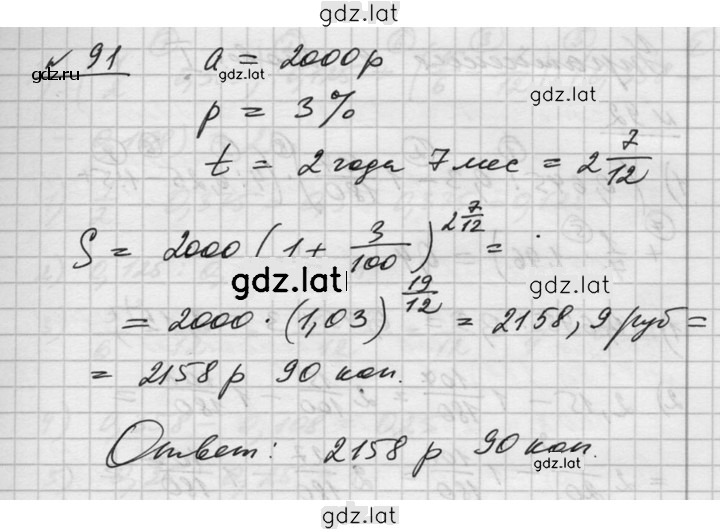 gdz.lat
№ 91 a = 2000 р
gdz.ru gdz.lat
p = 3 %
gdz.lat
t = 2 года 7 мес = 2 7/12
S = 2000 (1 + 3/100)^2 7/12 =
gdz.lat gdz.lat
= 2000 · (1,03)^19/12 = 2158,9 руб =
= 2158 р 90 коп.
Ответ: 2158 р 90 коп.
gdz.lat
gdz.lat